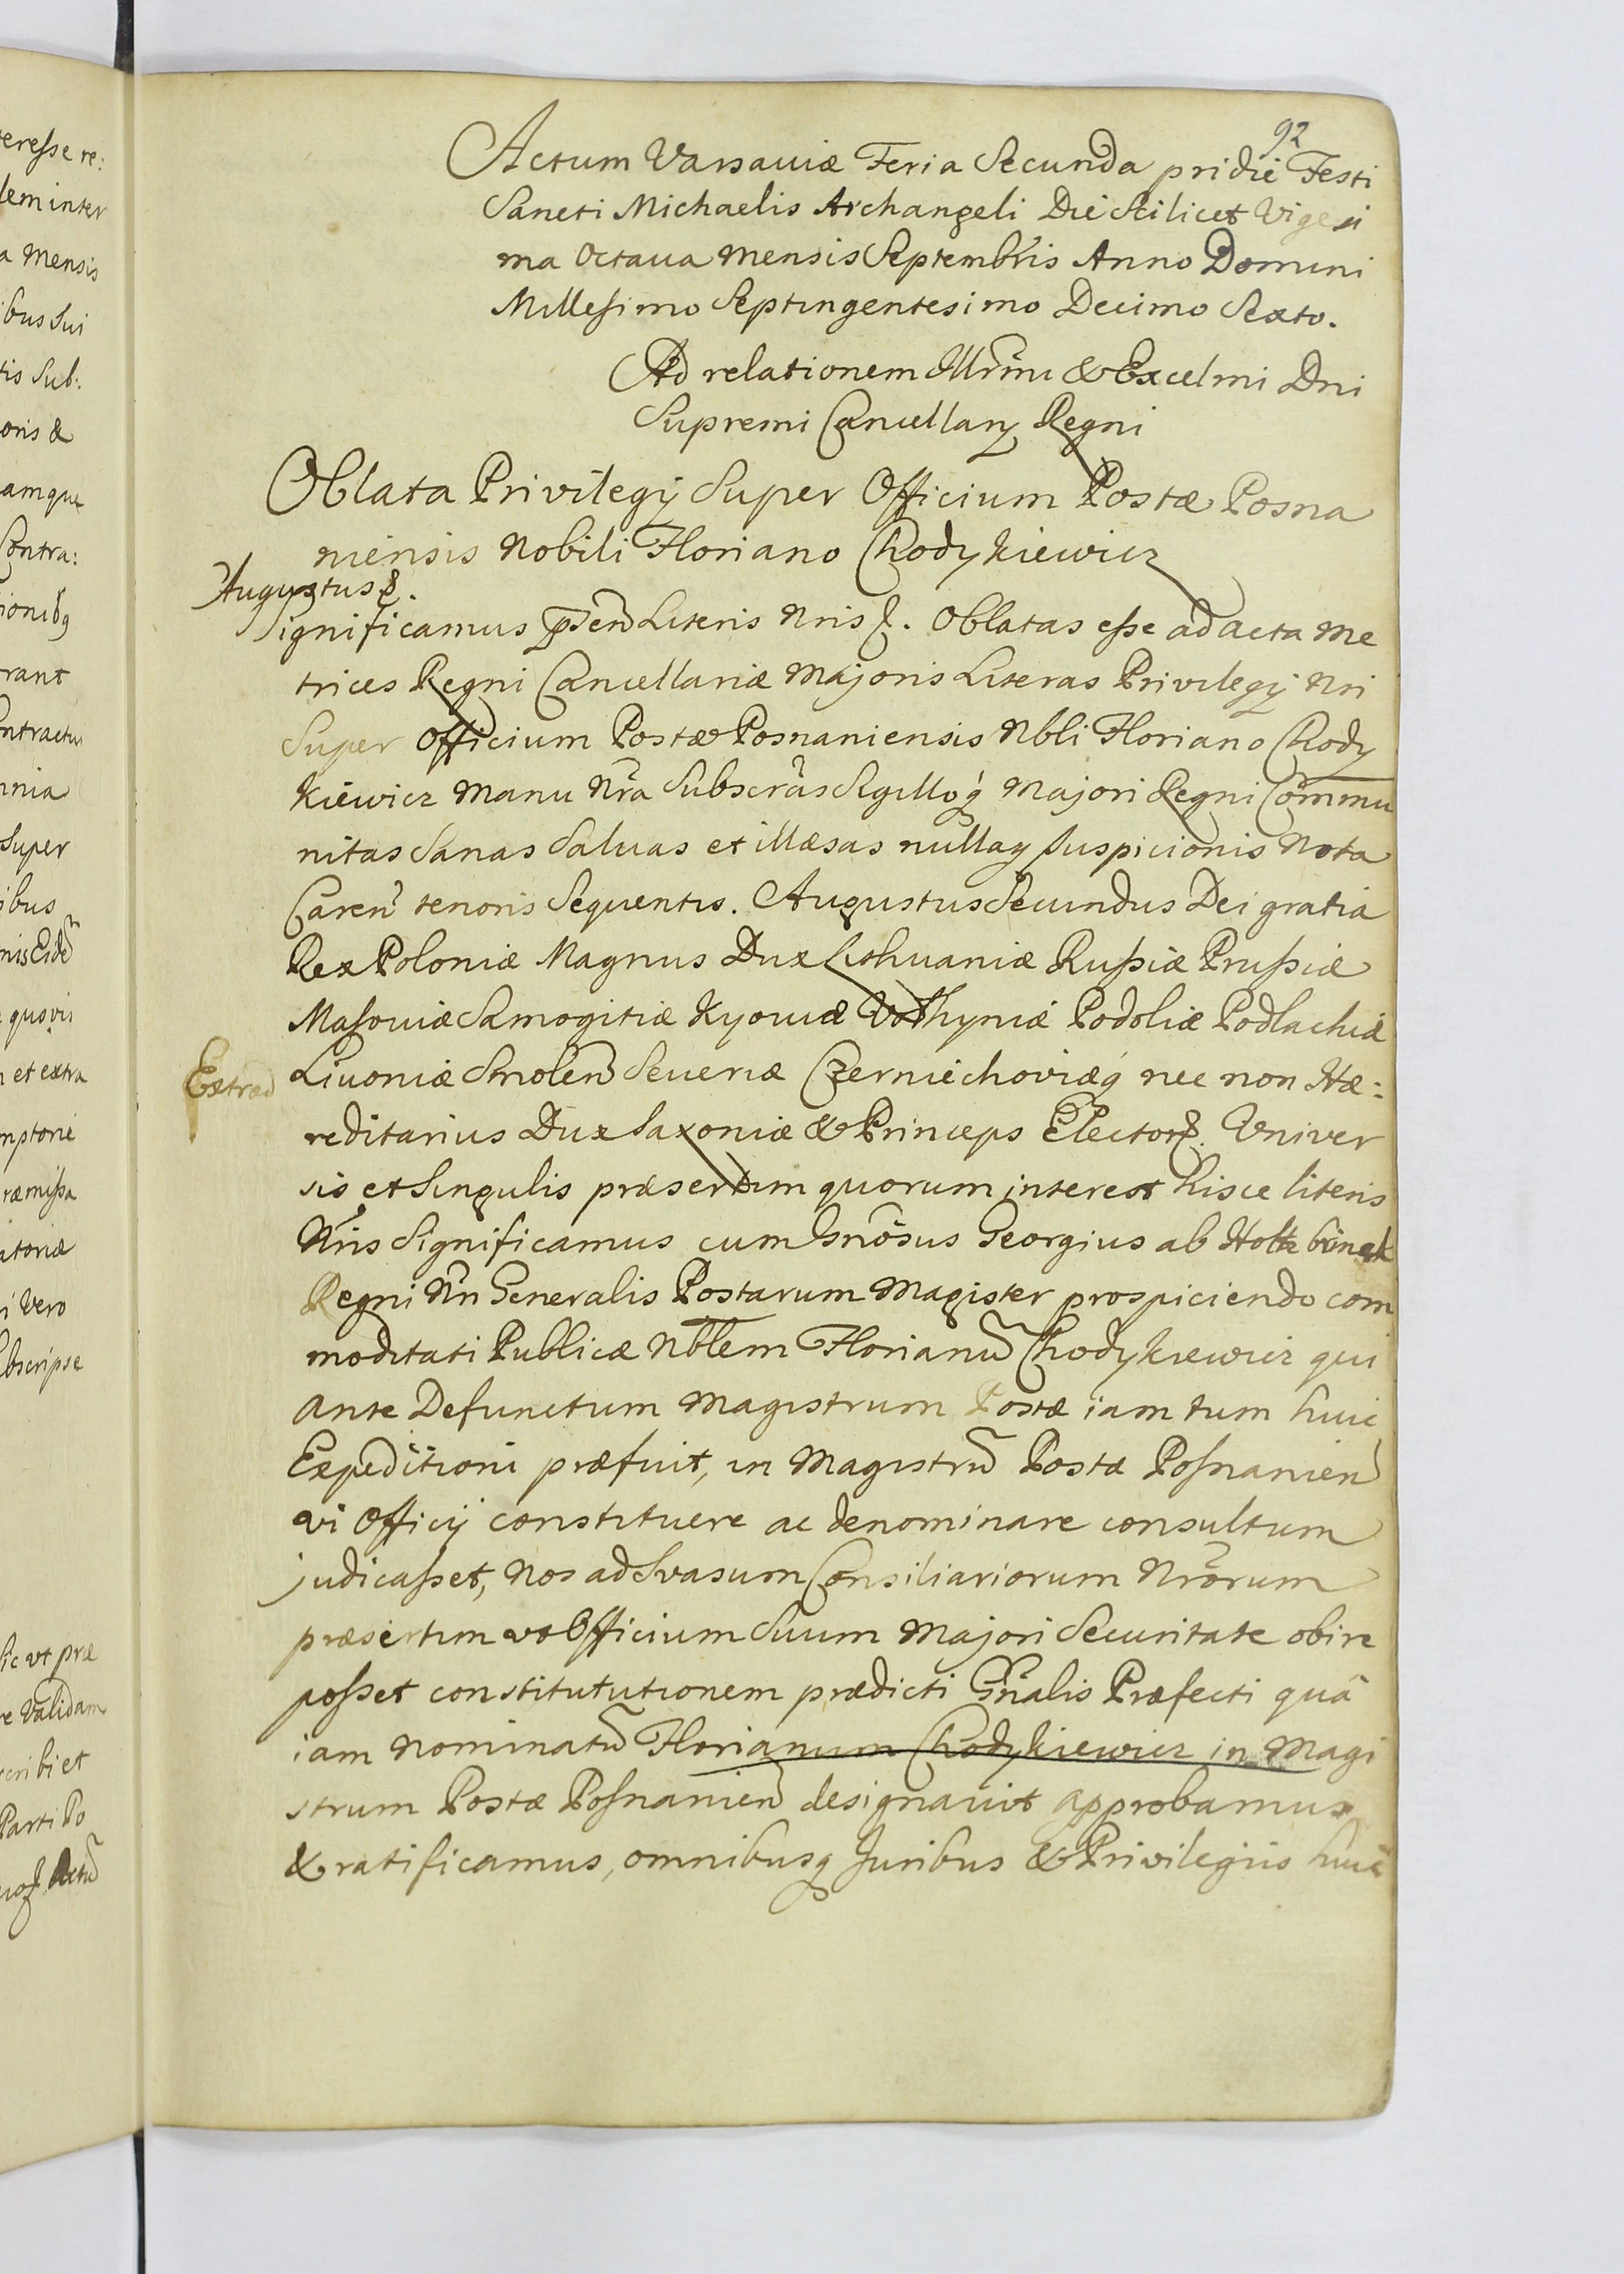 eresse re:
lem inter
a Mensis
ibus Sui
tis Sub:
oris &
amque
Contra:
rant
ontractu
nnia
Super
ibus
et extra
mptorie
ræmissa
atoriæ
i Vero
bscripse
sic ut præ
re Validam
cribi et
Parti Po
92
Actum Varsaviæ Feria Secunda pridie Festi
Sancti Michaelis Archangeli Die Scilicet Vigesi
ma Octaua Mensis Septembris Anno Domini
Millesimo Septingentesimo Decimo Sexto.
Ad relationem Illrmi & Excelmi Dni
Supremi Cancellarij Regni
Oblata Privilegij Super Officium Postæ Posna
niensis Nobili Floriano Chodykiewicz
Augustus &.
Significamus pñsen Literis Nris &. Oblatas esse ad acta Me
trices Regni Cancellariæ Majoris Literas Privilegij Nri
Super Officium Postæ Posnaniensis Nbli Floriano Chody
kiewicz Manu Nra Subscras Sigilloq Majori Regni Commu
nitas Sanas Saluas et illæsas nullaq Suspicionis Nota
Caren tenoris Sequentis. Augustus Secundus Dei gratia
Rex Poloniæ Magnus Dux Lithuaniæ Russiæ Prussiæ
Masoviæ Samogitiæ Kyoviæ Volhyniæ Podoliæ Podlachiæ
Extrad
Livoniæ Smolen Severiæ Czerniechoviæq nec non Hæ:
reditarius Dux Saxoniæ & Princeps Elector &. Univer
sis et Singulis præsertim quorum interest hisce literis
Nris Significamus cum Gnosus Georgius ab Holtz bünek
Regni Nri Generalis Postarum Magister prospiciendo com
moditati Publicæ Nblem Florianũ Chodykiewicz qui
ante Defunctum Magistrum Postæ iam tum huic
Expeditioni præfuit, in Magistrũ Postæ Posnanien
vi Officij constituere ac denominare consultum
judicasset, Nos ad Svasum Consiliariorum Nrõrum
præsertim vt Officium Suum Majori Securitate obire
posset constitututionem prædicti Gñalis Præfecti quâ
iam Nominatũ Florianum Chodykiewicz in Magi
strum Postæ Posnanien designavit approbamus
& ratificamus, omnibusq Juribus & Privilegiis huic